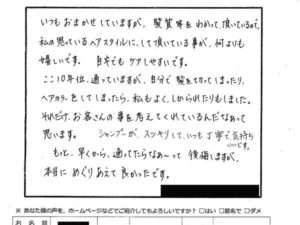 いつもおまかせしていますが、髪質等をわかって頂いているので、
私の思っているヘアスタイルにして頂いている事が、何よりも
嬉しいです。自宅でもケアしやすいです。
ここ10年位、通っていますが、自分で髪を切ってしまったり、
ヘアカラーをしてしまったら、私もよくしかられたりもしました。
それだけ、お客さんの事を考えてくれているんだなぁって
思います。シャンプーが、スッキリして、いつも丁寧で気持ち
いいです。
もっと、早くから、通ってたらなぁ〜って後悔しますが、
本当にめぐりあえて良かったです。
※ あなた様の声を、ホームページなどでご紹介してもよろしいですか？ □はい □匿名で □ダメ
お 名 前